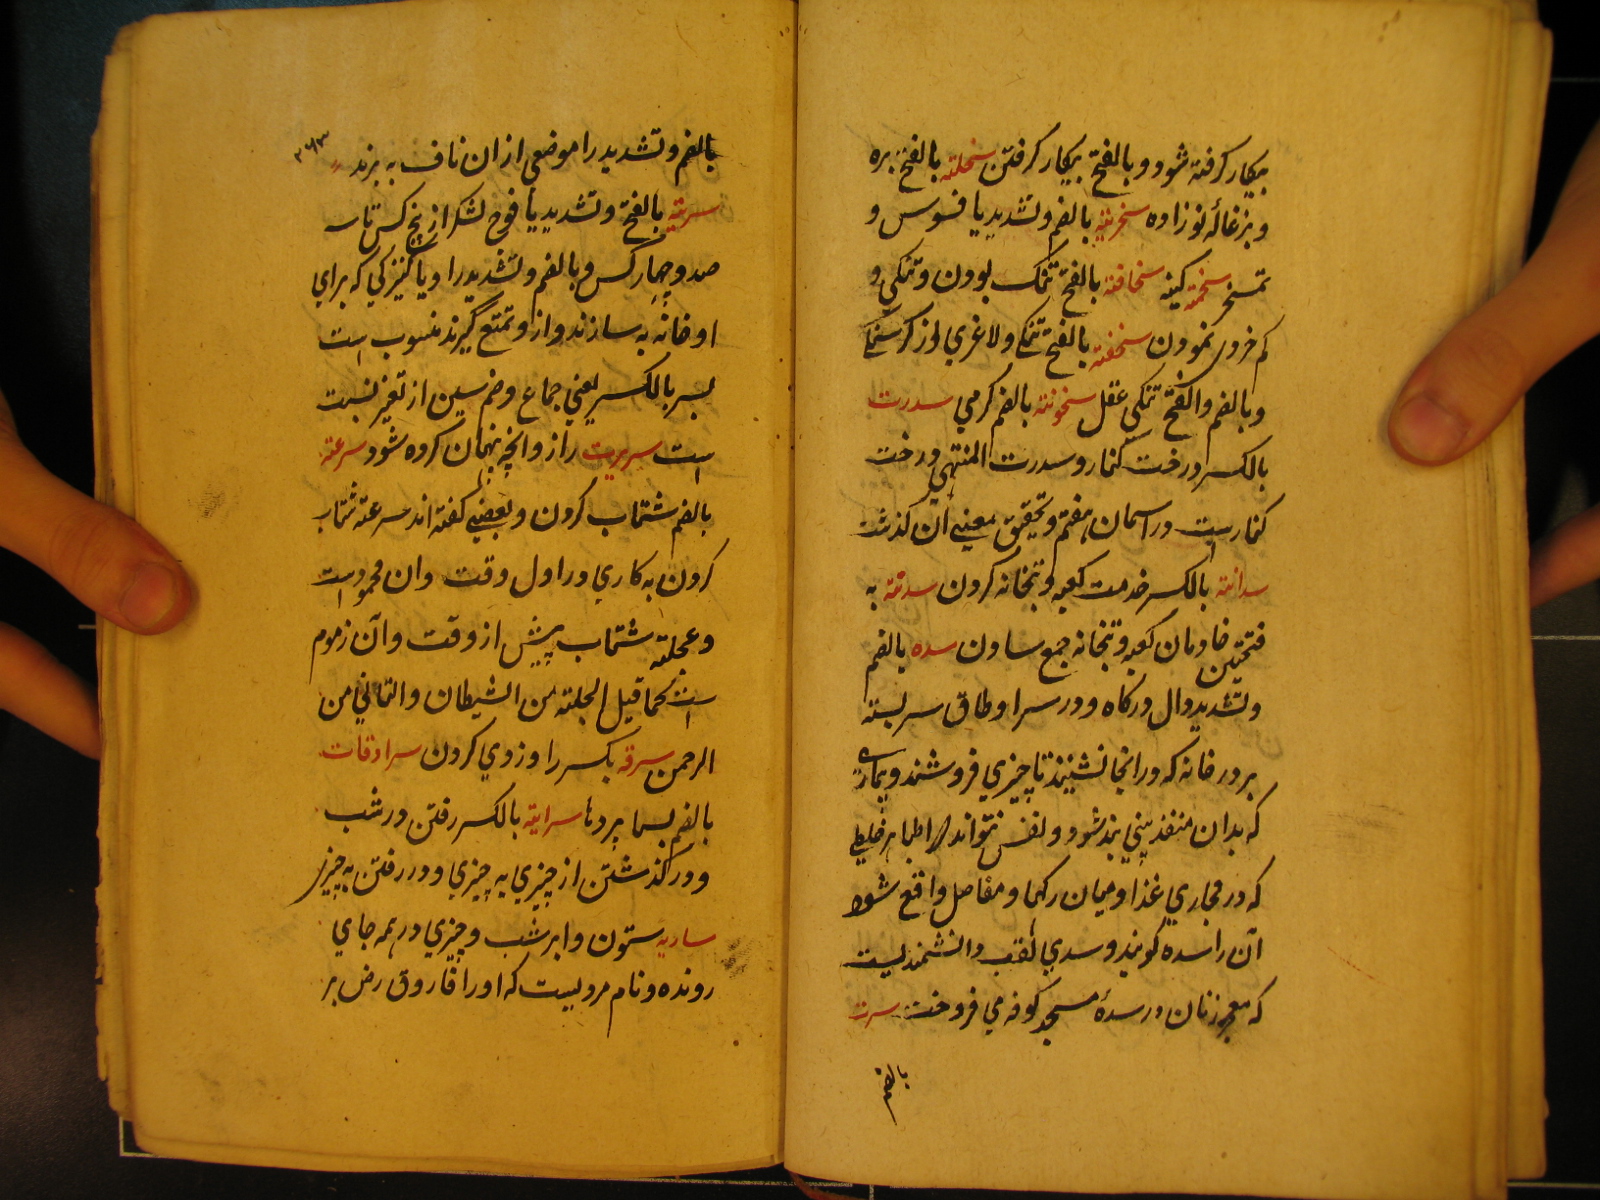 بیکار گرفته شود و بالفتح بیکار گرفتن سخلته بالفتح بره
و بزغالهٔ نوزاده سخریته بالضم و تشدید یا فسوس و
تمسخر سخیمته کینه سخافته بالفتح تنک بودن و تنکی و
کم خرد نمودن سخفته بالفتح تنکی و لاغری از کرسنکی
و بالضم و الفتح تنکی عقل سخونته بالضم کرمی سدرت
بالکسر درخت کنار و سدرت المنتهی درخت
کنارست در اسمان هفتم و تحقیق معنی ان کذشت
سدانته بالکسر خدمت کعبه و بتخانه کردن سدنته به
فتحتین خادمان کعبه و بتخانه جمع سادن سده بالضم
و تشدید دال درکاه و در سرا و طاق سر بسته
بر در خانه که در انجا نشینند تا چیزی فروشند و بیماری
که بدان منفذ بینی بند شود و نفس نتواند اطبا هر غلیظی
که در مجاری غذا و میان رکها و مفاصل واقع شود
آن را سده کویند و سدی لقب دانشمندیست
که معجر زنان در سدهٔ مسجد کوفه می فروخت سرت
بالضم
بالضم و تشدید را موضعی از ان ناف به برند
سریته بالفتح و تشدید یا فوج لشکر از پنج کس تا سه
صد و چهار کس و بالضم و تشدید را و یا کنیزکی که برای
او خانه به سازند و از و تمتع گیرند منسوب است
بسر بالکسر یعنی جماع و ضم سین از تغیر نسبت
است سریرت راز و انچه پنهان کرده شود سرعته
بالضم شتاب کردن و بعضی کفته اند سرعته شتاب
کردن به کاری در اول وقت و ان محمود است
و عجلته شتاب پیش از وقت و آن زموم
است کما قیل العجلته من الشیطان و التانی من
الرحمن سرقه بکسر را دزدی کردن سرادقات
بالضم بسا پردها سرایته بالکسر رفتن در شب
و در کذشتن از چیزی به چیزی و در رفتن به چیز
ساریه ستون و ابر شب و چیزی در همه جای
رونده و نام مردیست که او را فاروق رض بر